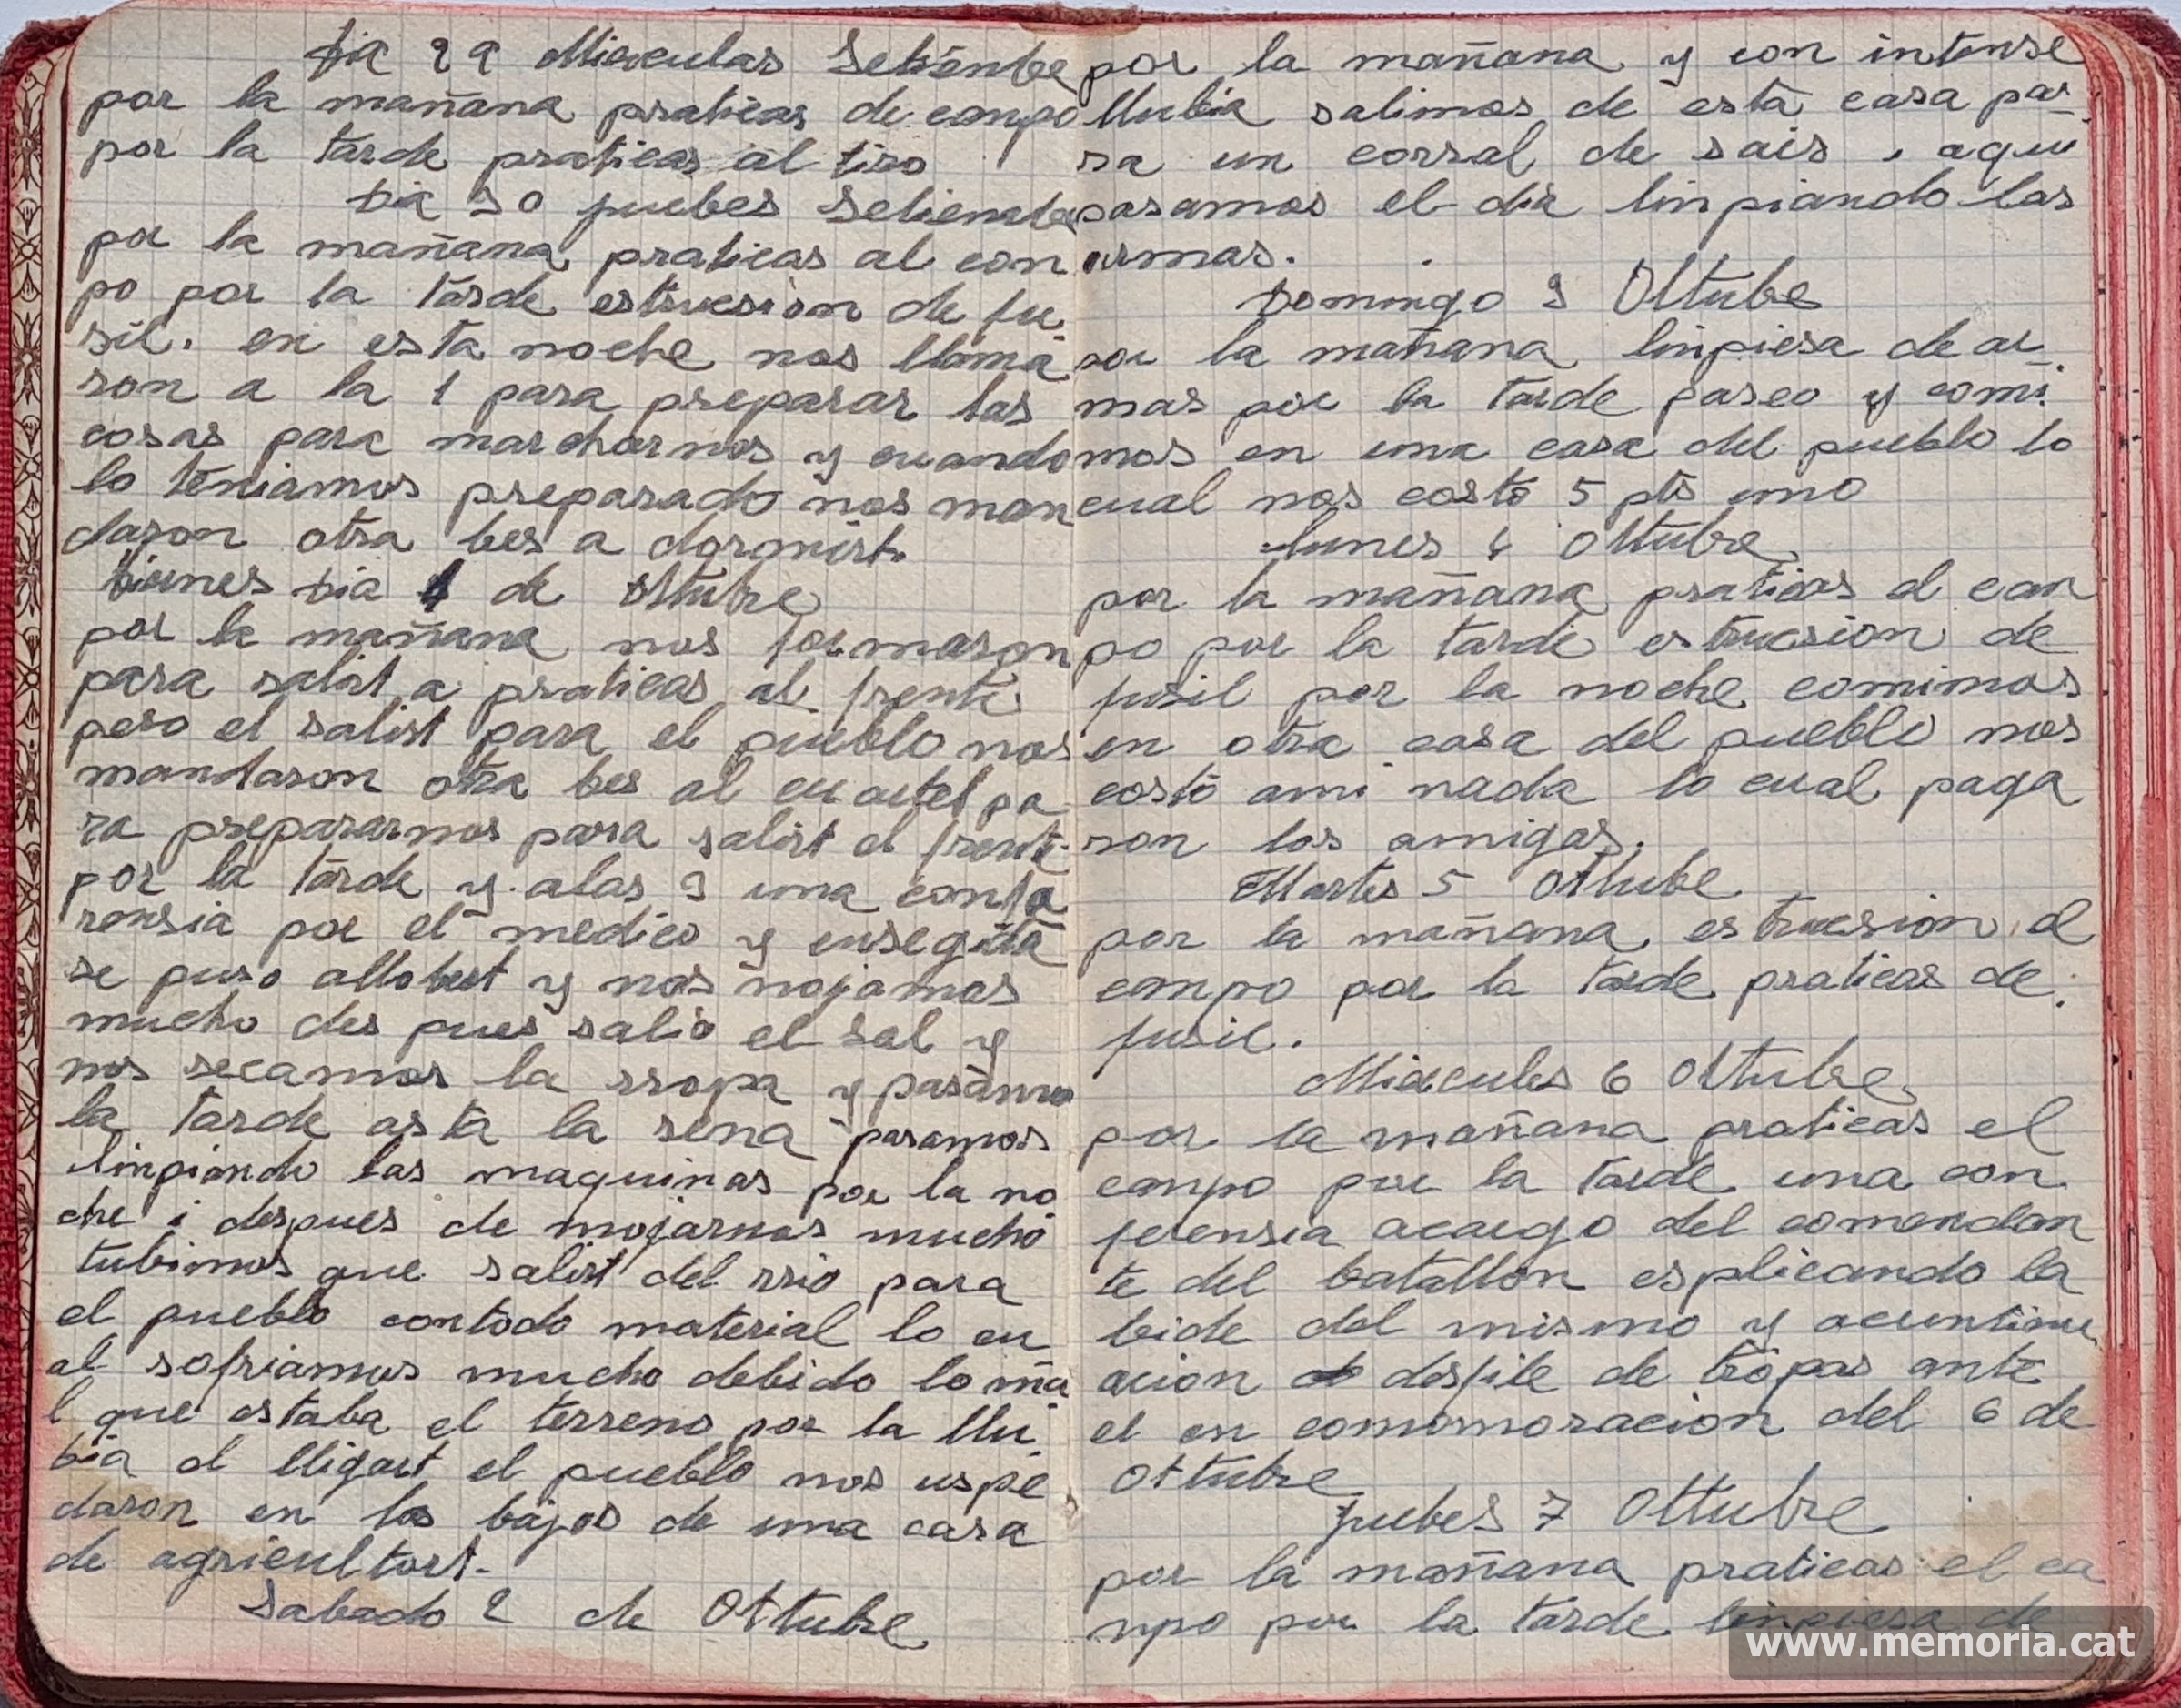 Dia 29 Mierculas Setienbre
por la mañana praticas de conpo
por la tarde praticas al tiro
Dia 30 juebes Setienbre
por la mañana praticas al con
po por la tarde estrucsion de fu
sil. en esta noche nos llama
ron a la 1 para preparar las
cosas para marcharnos y cuando
lo teniamos preparado nos man
daron otra bes a dormirt.
biernes Dia 1 de Ottubre
por la mañana nos formaron
para salirt a praticas al frente
pero el salirt para el pueblo nos
mandaron otra bes al cuartel pa
ra prepararnos para salirt el frente
por la tarde y alas 3 una confe
rensia por el medico y ensegita
se puso allobert y nos mojamos
mucho des pues salio el sol y
nos secamos la rropa y pasamos
la tarde asta la sena pasamos
linpiando las maquinas por la no
che i despues de mojarnos mucho
tubimos que salirt del rrio para
el pueblo contodo material lo cu
al sofriamos mucho debido lo ma
l que estaba el terreno por la llu
bia el lligart el pueblo nos uspe
daron en los bajos de una casa
de agricultort.
Sabado 2 de Ottubre
por la mañana y con intense
llubia salimos de esta casa pa
ra un corral de sais i aqui
pasamos el dia linpiando las
armas.
Domingo 3 Ottubre
por la mañana linpiesa de ar
mas por la tarde paseo y comi
mos en una casa del pueblo lo
cual nos costo 5 pts uno
lunes 4 Ottubre
por la mañana praticas el can
po por la tarde estrucsion de
fusil por la noche comimos
en otra casa del pueblo nos
costo ami nada lo cual paga
ron los amigos.
Martes 5 Ottubre
por la mañana estrucsion el
canpo por la tarde praticas de
fusil.
Miercules 6 Ottubre
por la mañana praticas el
canpo por la tarde una con
ferensia acargo del comendan
te del batallon esplicando la
bide del mismo y acuntinu
acion desfile de tropas ante
el en comomoracion del 6 de
Ottubre
juebes 7 Ottubre
por la mañana praticas el ca
npo por la tarde linpiesa de
www.memoria.cat